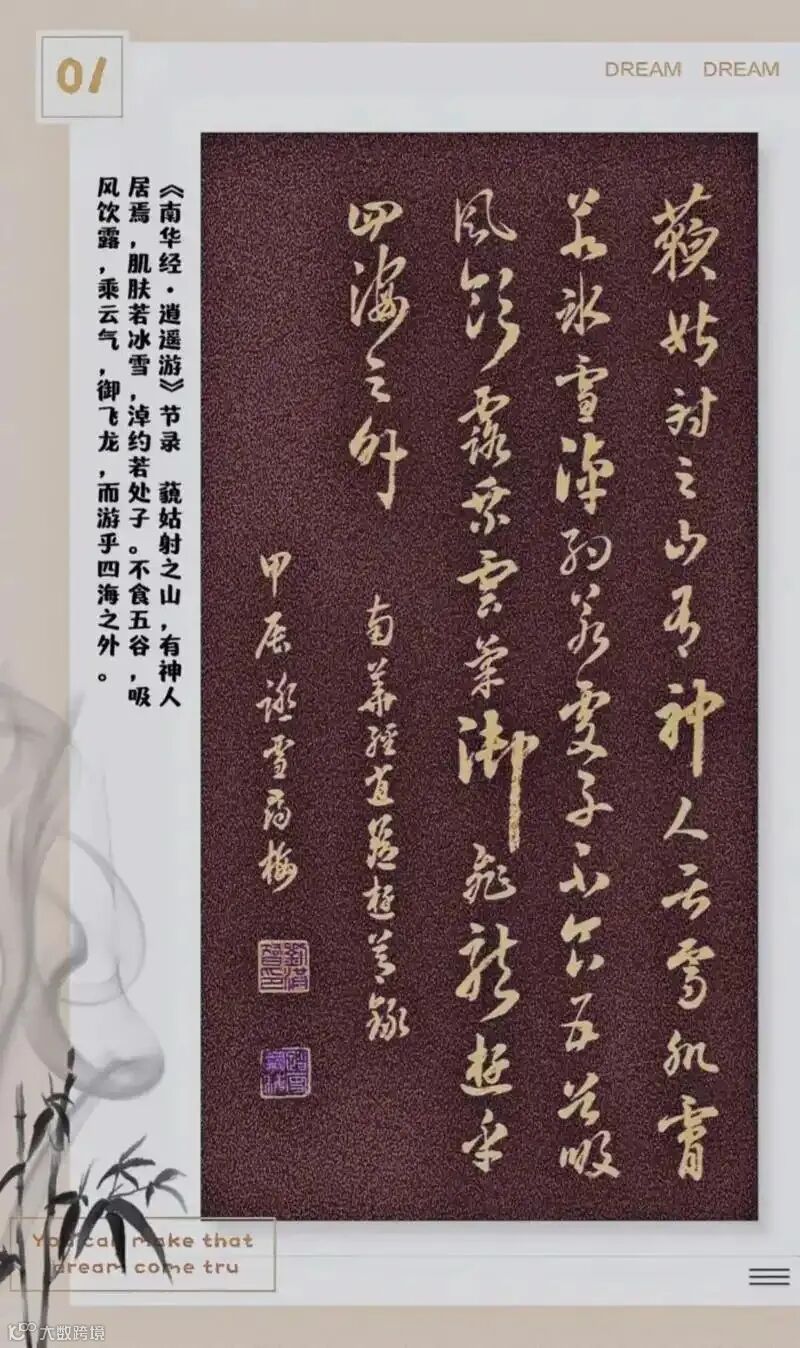 01
DREAM DREAM
藐姑射之山有神人居焉肌膚
若冰雪淖約若處子不食五谷吸
風飲露乘雲氣御飛龍遊乎
四海之外
南華經逍遙遊節錄
甲辰踏雪尋梅
《南华经·逍遥游》节录 藐姑射之山，有神人
居焉，肌肤若冰雪，淖约若处子。不食五谷，吸
风饮露，乘云气，御飞龙，而游乎四海之外。
You can make that
dream come tru
大数跨境